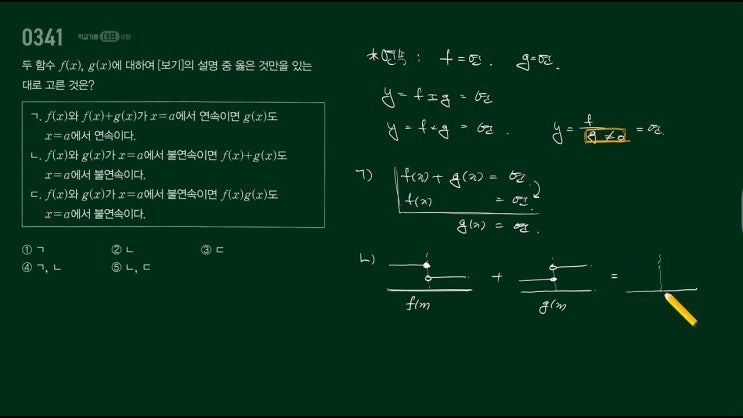 0341
학교기출 대표 유형
두 함수 f(x), g(x)에 대하여 [보기]의 설명 중 옳은 것만을 있는
대로 고른 것은?
ㄱ. f(x)와 f(x)+g(x)가 x=a에서 연속이면 g(x)도
x=a에서 연속이다.
ㄴ. f(x)와 g(x)가 x=a에서 불연속이면 f(x)+g(x)도
x=a에서 불연속이다.
ㄷ. f(x)와 g(x)가 x=a에서 불연속이면 f(x)g(x)도
x=a에서 불연속이다.
① ㄱ ② ㄴ ③ ㄷ
④ ㄱ, ㄴ ⑤ ㄴ, ㄷ
*연속 : f=연. g=연.
y = f±g = 연
y = f×g = 연. y = f/g≠0 = 연.
ㄱ) f(x) + g(x) = 연.
f(x) = 연.
g(x) = 연.
ㄴ) + =
f(x) g(x)